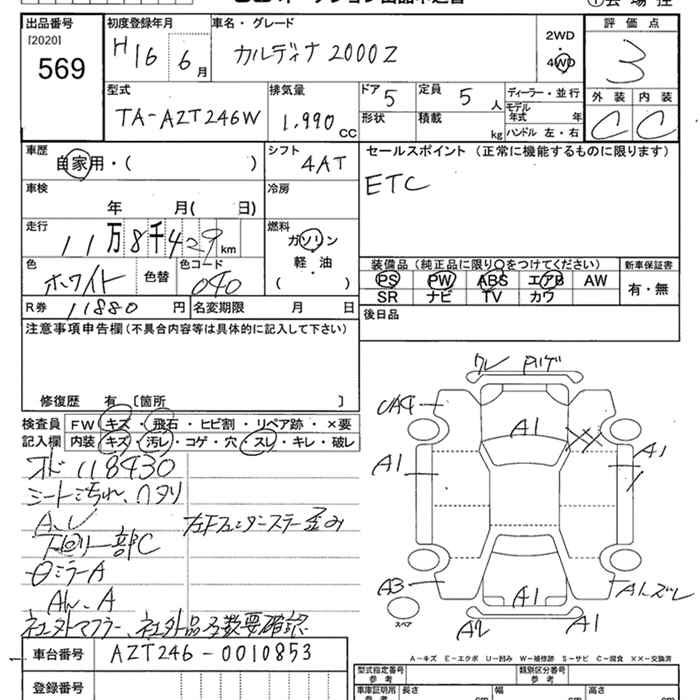 出品番号
[2020]
569
初度登録年月
H16 6月
車名・グレード
カルディナ2000Z
2WD
4WD
評価点
3
型式
TA-AZT246W
排気量
1,990 CC
ドア 5
形状
定員 5 人
積載 kg
ディーラー・並行
モデル年式 年
ハンドル 左・右
外装 内装
C C
車歴
自家用・( )
シフト
4AT
セールスポイント (正常に機能するものに限ります)
ETC
車検
年 月( 日)
冷房
走行
11万8千429km
燃料
ガソリン
軽・油
( )
色
ホワイト
色替
色コード
040
装備品 (純正品に限り○をつけてください)
新車保証書
PS PW ABS エアB AW
SR ナビ TV カワ
有・無
R券 11880 円
名変期限 月 日
後日品
注意事項申告欄 (不具合内容等は具体的に記入して下さい)
修復歴 有 [箇所 ]
検査員記入欄
FW キズ・飛石・ヒビ割・リペア跡・×要
内装 キズ・汚レ・コゲ・穴・スレ・キレ・破レ
118430
シート汚れ、ヘタリ
A、U
下回り一部C
ミラーA
社外マフラー、社外品多数要確認
A1
A1
A1
A3
A1
A1
A2
スペア
A-キズ E-エクボ U-凹み W-補修跡 S-サビ C-腐食 ××-交換済
車台番号
AZT246-0010853
登録番号
型式指定番号
参考
類別区分番号
参考
車庫証明用
参考
長さ cm
幅 cm
高さ cm